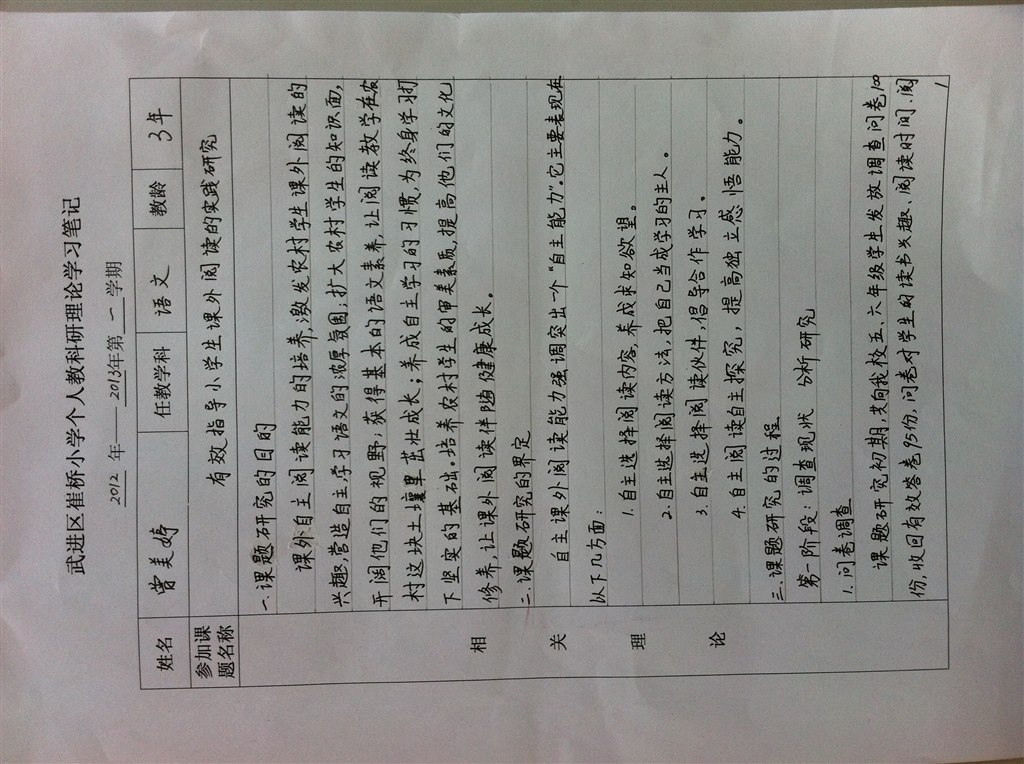 武进区崔桥小学个人教科研理论学习笔记
2012 年——2013年第 一 学期
姓名 曾美婷 任教学科 语文 教龄 3年
参加课题名称 有效指导小学生课外阅读的实践研究
相关理论
一.课题研究的目的
课外自主阅读能力的培养,激发农村学生课外阅读的
兴趣,营造自主学习语文的浓厚氛围;扩大农村学生的知识面,
开阔他们的视野;获得基本的语文素养,让阅读教学在农
村这块土壤里茁壮成长;养成自主学习的习惯,为终身学习打
下坚实的基础。培养农村学生的审美素质,提高他们的文化
修养,让课外阅读伴随健康成长。
二.课题研究的界定
自主课外阅读能力强调突出一个“自主能力”.它主要表现在
以下几方面:
1. 自主选择阅读内容,养成求知欲望。
2. 自主选择阅读方法,把自己当成学习的主人。
3. 自主选择阅读伙伴,倡导合作学习。
4. 自主阅读自主探究,提高独立感悟能力。
三.课题研究的过程
第一阶段:调查现状 分析研究
1. 问卷调查
课题研究初期,我向我校五、六年级学生发放调查问卷100
份,收回有效答卷95份,问卷对学生的读书兴趣、阅读时间、阅
1